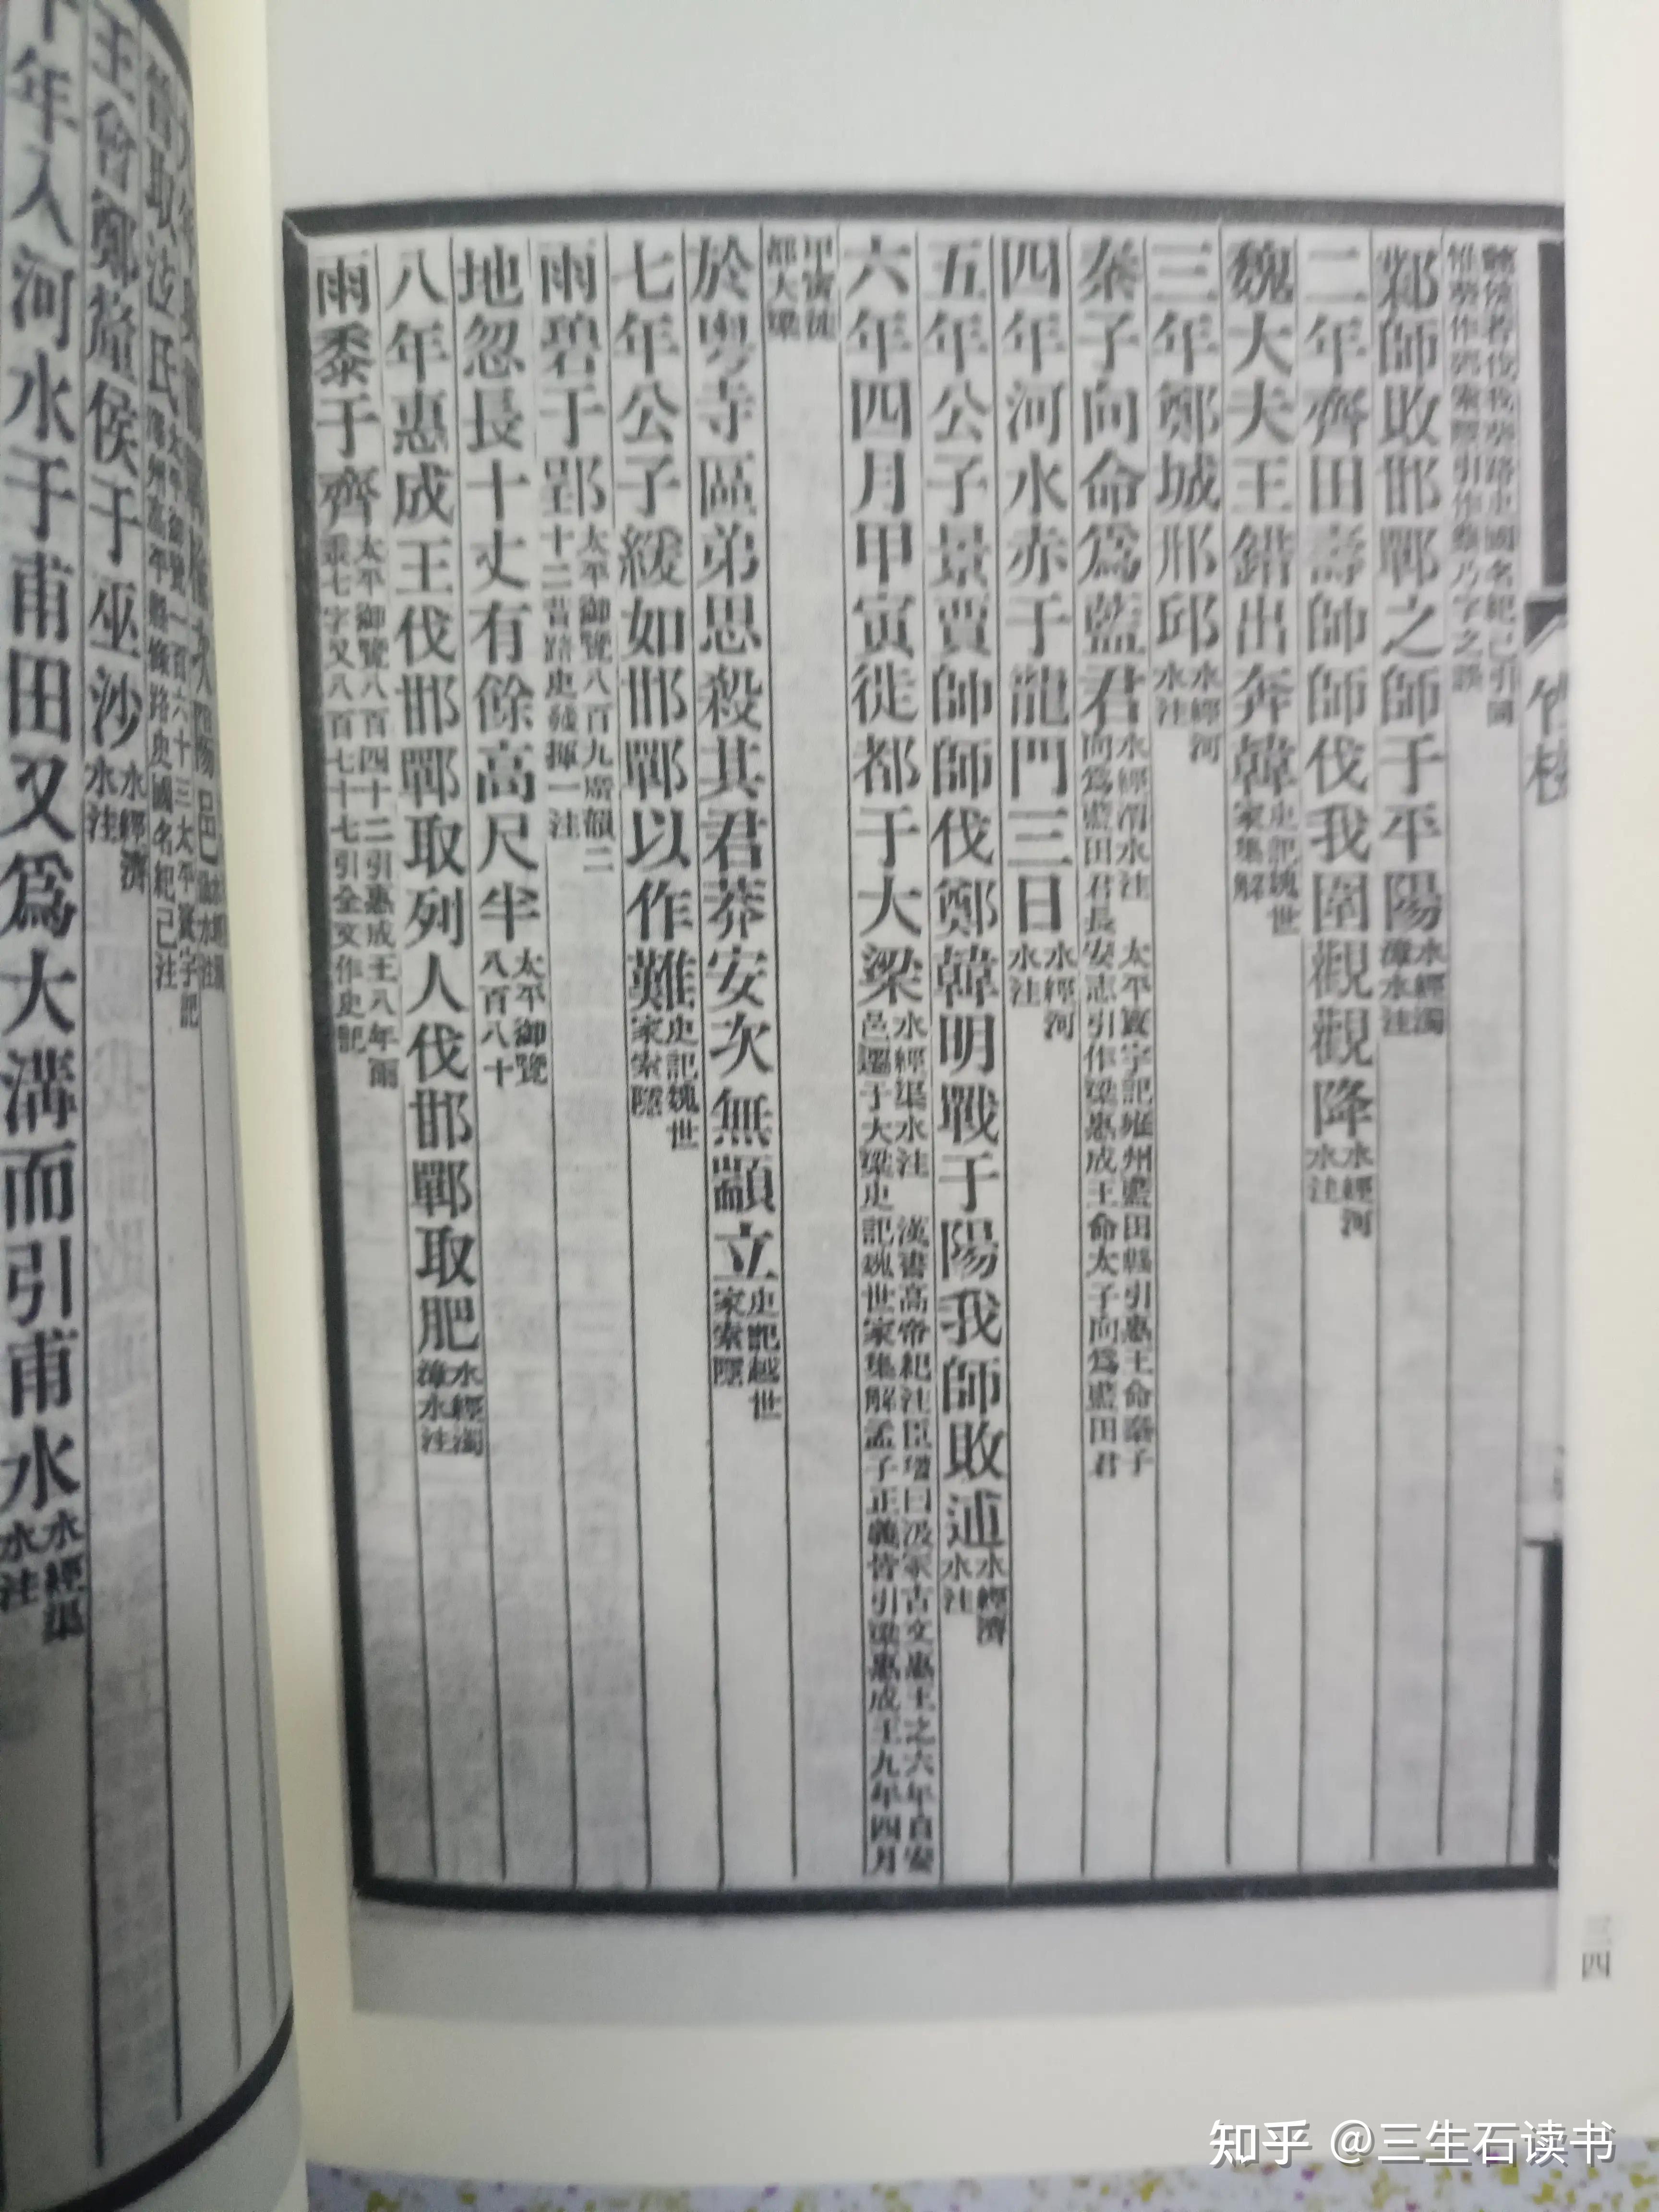 惟葵作郊索隱引作蔡乃字之誤
鄴師敗邯鄲之師于平陽水經濁漳水注
二年齊田壽帥師伐我圍觀觀降水經河水注
魏大夫王錯出奔韓史記魏世家集解
三年鄭城邢邱水經河水注
秦子向命爲藍君水經渭水注 太平寰宇記雍州藍田縣引惠王命秦子向爲藍田君長安志引作梁惠成王命太子向爲藍田君
四年河水赤于龍門三日水經河水注
五年公子景賈帥師伐鄭韓明戰于陽我師敗逋水經濟水注
六年四月甲寅徙都于大梁水經渠水注 漢書高帝紀注臣瓚曰汲冢古文惠王之六年自安邑遷于大梁史記魏世家集解孟子正義皆引梁惠成王九年四月
甲寅徙都大梁
於粵寺區弟思殺其君莽安次無顓立史記越世家索隱
七年公子緩如邯鄲以作難史記魏世家索隱
雨碧于郢太平御覽八百九廣韻二十二昔路史發揮一注
地忽長十丈有餘高尺半太平御覽八百八十
八年惠成王伐邯鄲取列人伐邯鄲取肥水經濁漳水注
雨黍于齊太平御覽八百四十二引惠成王八年雨黍七字又八百七十七引全文作史記
三四
取泫氏太平御覽一百六十三太平寰宇記澤州高平縣條路史國名紀己注
王會鄭釐侯于巫沙水經濟水注
十年入河水于甫田又爲大溝而引甫水水經渠水注
知乎 @三生石读书